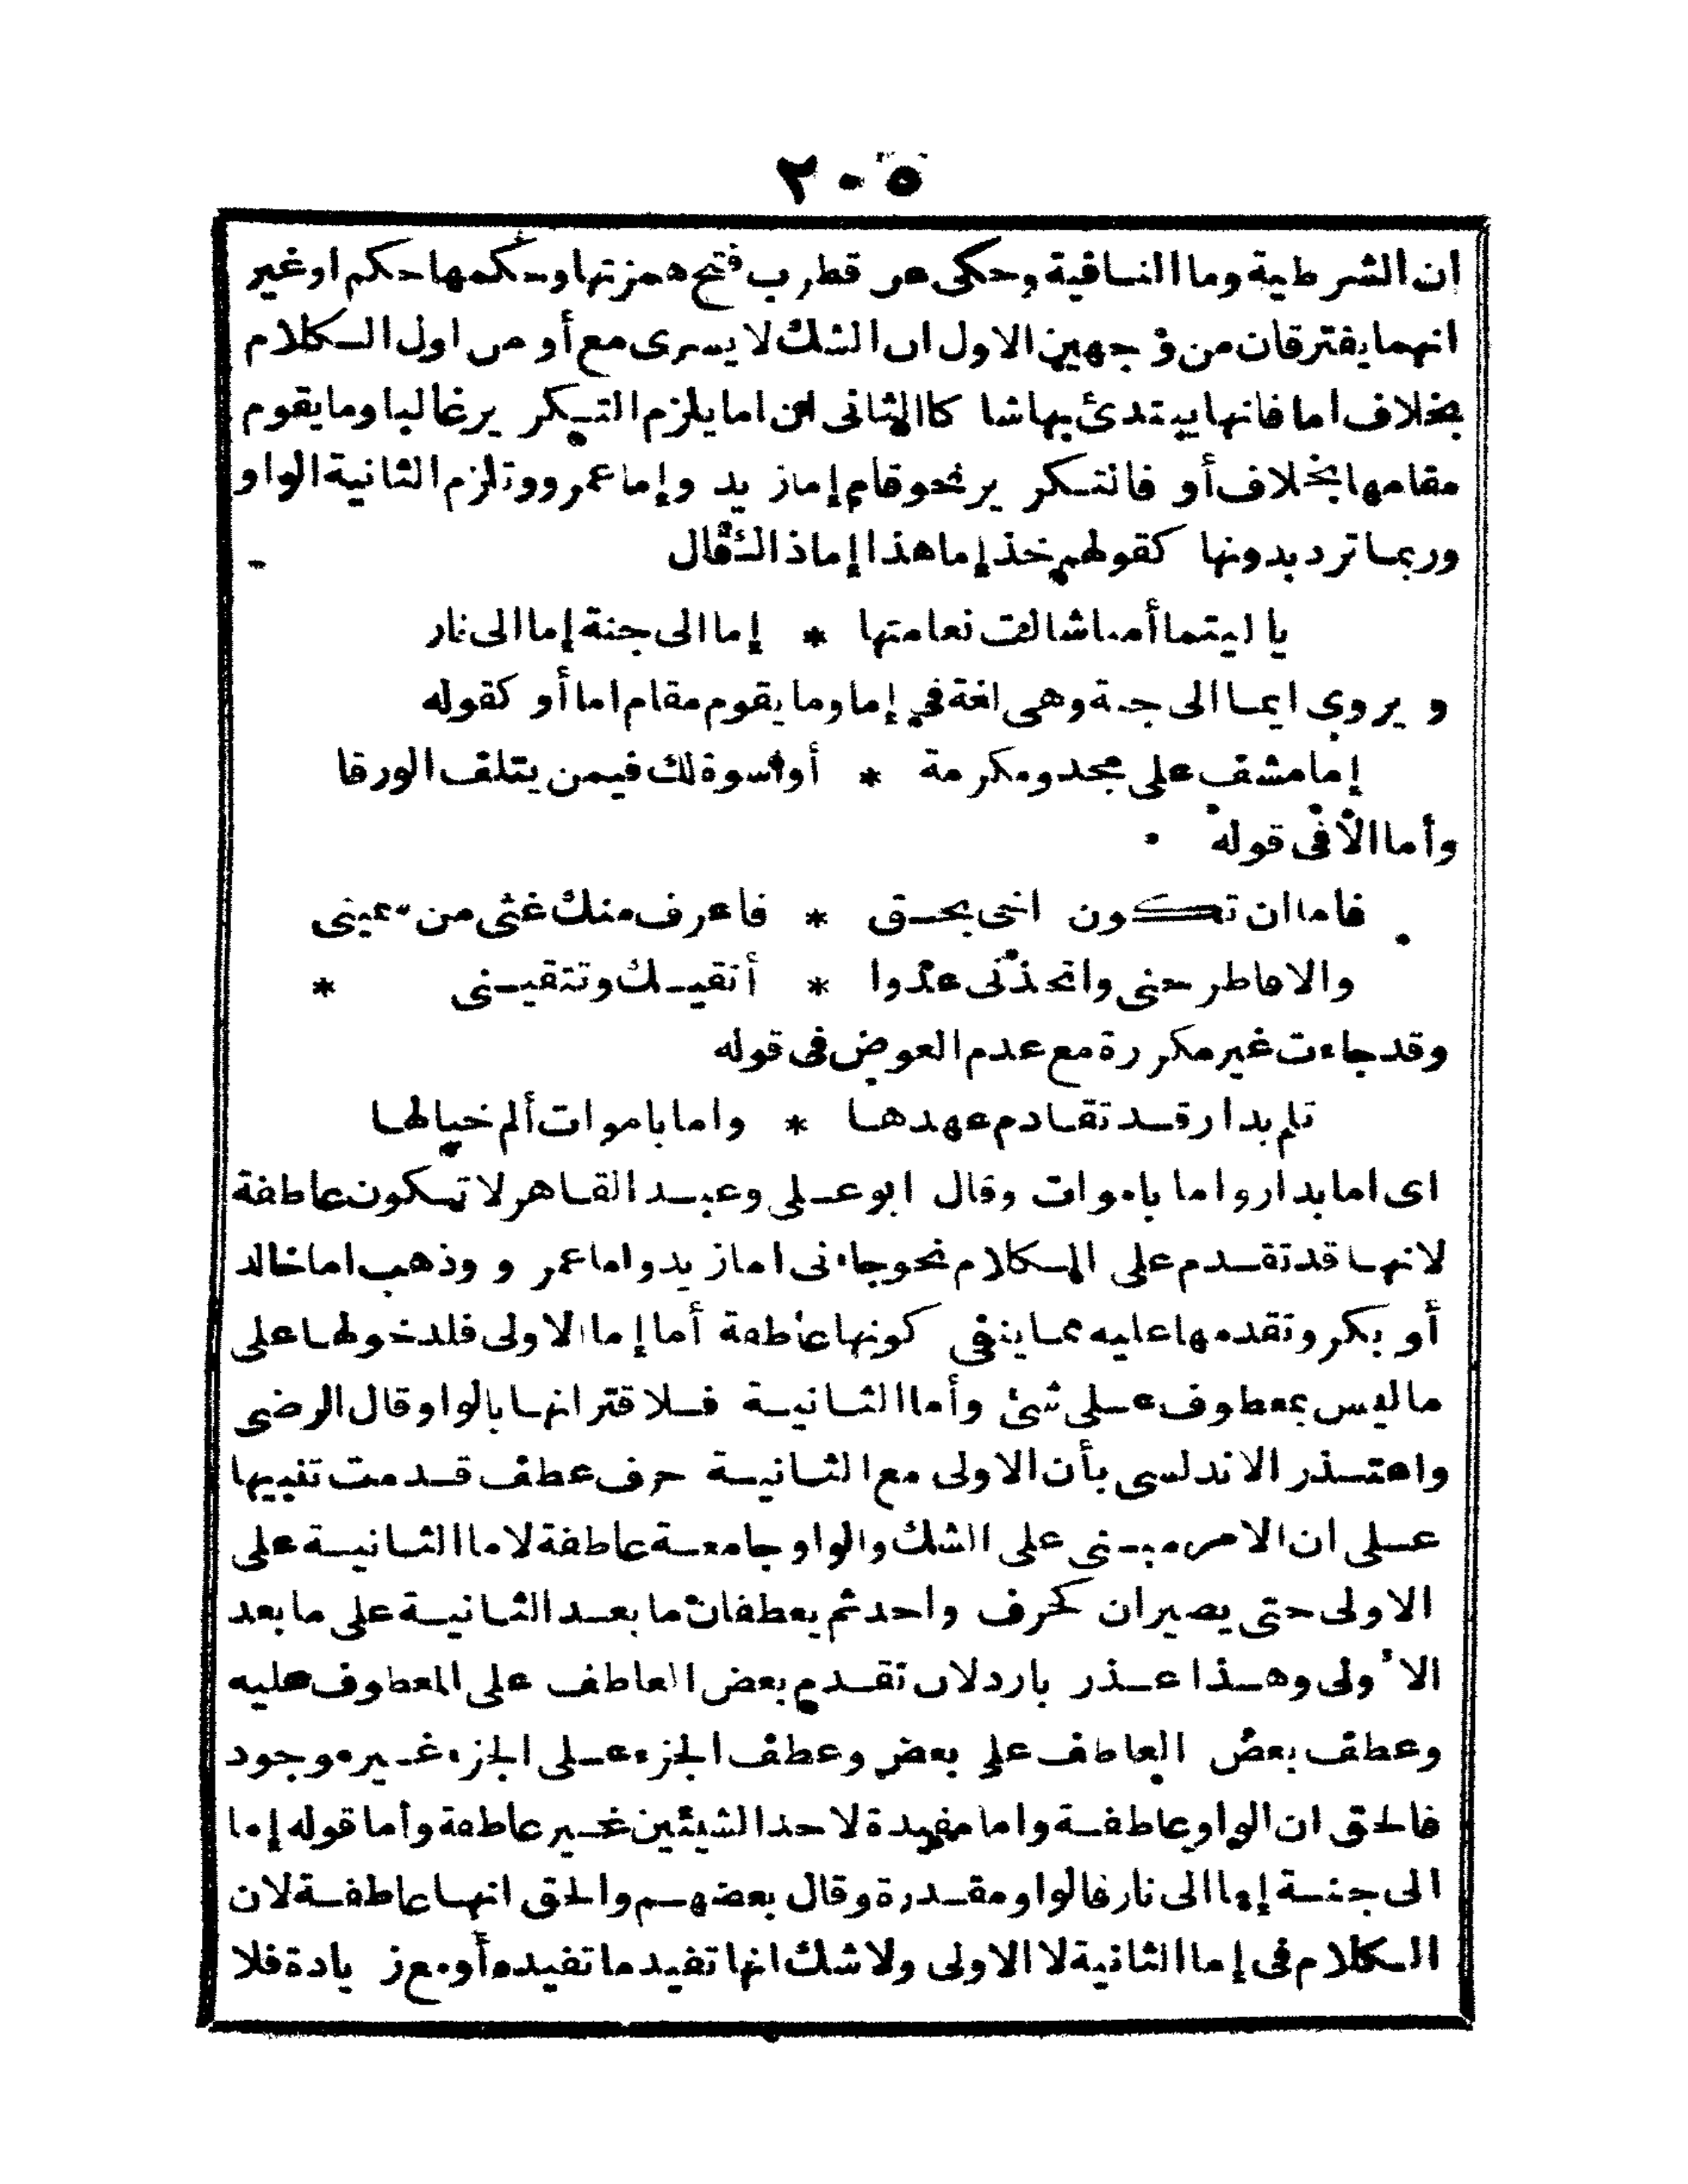 ٢٠٥
ان الشرطية وما النافية وحكى عن قطرب فتح همزتها وحكمها حكم او غير
انهما يفترقان من وجهين الاول ان الشك لا يسرى مع أو من اول الكلام
بخلاف اما فانها يبتدئ بها شاكا الثانى ان اما يلزم التكرير غالبا وما يقوم
مقامها بخلاف أو فالتكرير نحو قام إما زيد وإما عمرو وتلزم الثانية الواو
وربما ترد بدونها كقولهم خذ إما هذا إما ذاك قال
يا ليتما أمنا شالت نعامتها * إما الى جنة إما الى نار
ويروى ايما الى جنة وهى لغة فى إما وما يقوم مقام اما أو كقوله
إما مشف على مجد ومكرمة * أو اسوة لك فيمن يتلف الورقا
وأما الا فى قوله
فاما ان تكون اخى بحق * فاعرف منك غثى من سمينى
والا فاطرحنى واتخذنى عدوا * أتقيك وتتقينى *
وقد جاءت غير مكررة مع عدم العوض فى قوله
تلم بدار قد تقادم عهدها * واما باموات ألم خيالها
اى اما بدار واما باموات وقال ابو على وعبد القاهر لا تكون عاطفة
لانها قد تقدم على الكلام نحو جاءنى اما زيد واما عمرو وذهب اما خالد
أو بكر وتقدمها عليه مما ينفى كونها عاطفة أما إما الاولى فلدخولها على
ما ليس بمعطوف على شئ وأما الثانية فلاقترانها بالواو قال الرضى
واعتذر الاندلسى بأن الاولى مع الثانية حرف عطف قدمت تنبيها
على ان الامر مبنى على الشك والواو جامعة عاطفة لاما الثانية على
الاولى حتى يصيران كحرف واحد ثم يعطفان ما بعد الثانية على ما بعد
الأولى وهذا عذر بارد لان تقدم بعض العاطف على المعطوف عليه
وعطف بعض العاطف على بعض وعطف الجزء على الجزء غير موجود
فالحق ان الواو عاطفة واما مفيدة لاحد الشيئين غير عاطفة وأما قوله إما
الى جنة إما الى نار فالواو مقدرة وقال بعضهم والحق انها عاطفة لان
الكلام فى إما الثانية لا الاولى ولا شك انها تفيد ما تفيده أو مع زيادة فلا